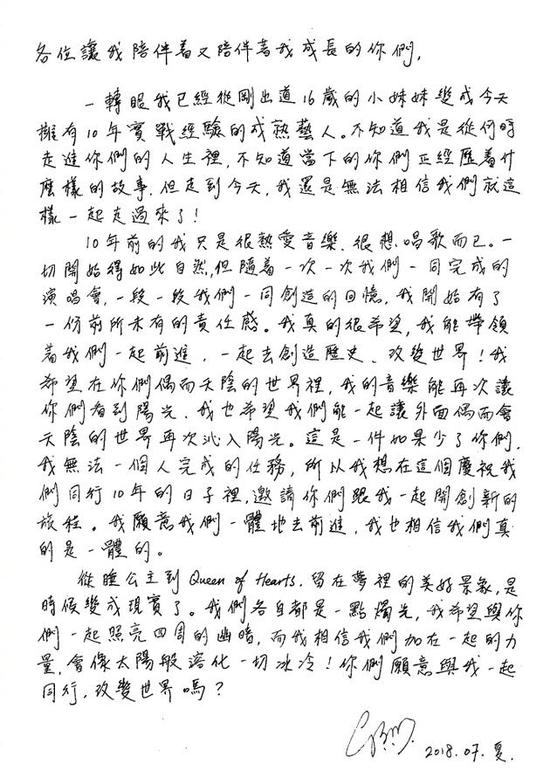 各位讓我陪伴着又陪伴着我成長的你們,
一轉眼我已經從剛出道16歲的小妹妹變成今天
擁有10年實戰經驗的成熟藝人。不知道我是從何時
走進你們的人生裡,不知道當下的你們正經歷着什
麼樣的故事,但走到今天,我還是無法相信我們就這
樣一起走過來了!
10年前的我只是很熱愛音樂、很想唱歌而已。一
切開始得如此自然,但隨着一次一次我們一同完成的
演唱會,一段一段我們一同創造的回憶,我開始有了
一份前所未有的責任感。我真的很希望,我能帶領
着我們一起前進,一起去創造歷史、改變世界!我
希望在你們偶而天陰的世界裡,我的音樂能再次讓
你們看到陽光,我也希望我們能一起讓外面偶而會
天陰的世界再次沁入陽光。這是一件如果少了你們,
我無法一個人完成的任務,所以我想在這個慶祝我
們同行10年的日子裡,邀請你們跟我一起開創新的
旅程。我願意我們一體地去前進,我也相信我們真
的是一體的。
從睡公主到Queen of Hearts,留在夢裡的美好景象,是
時候變成現實了。我們各自都是一點燭光,我希望與你
們一起照亮四周的幽暗,而我相信我們加在一起的力
量,會像太陽般溶化一切冰冷!你們願意與我一起
同行,改變世界嗎?
2018.07.夏.